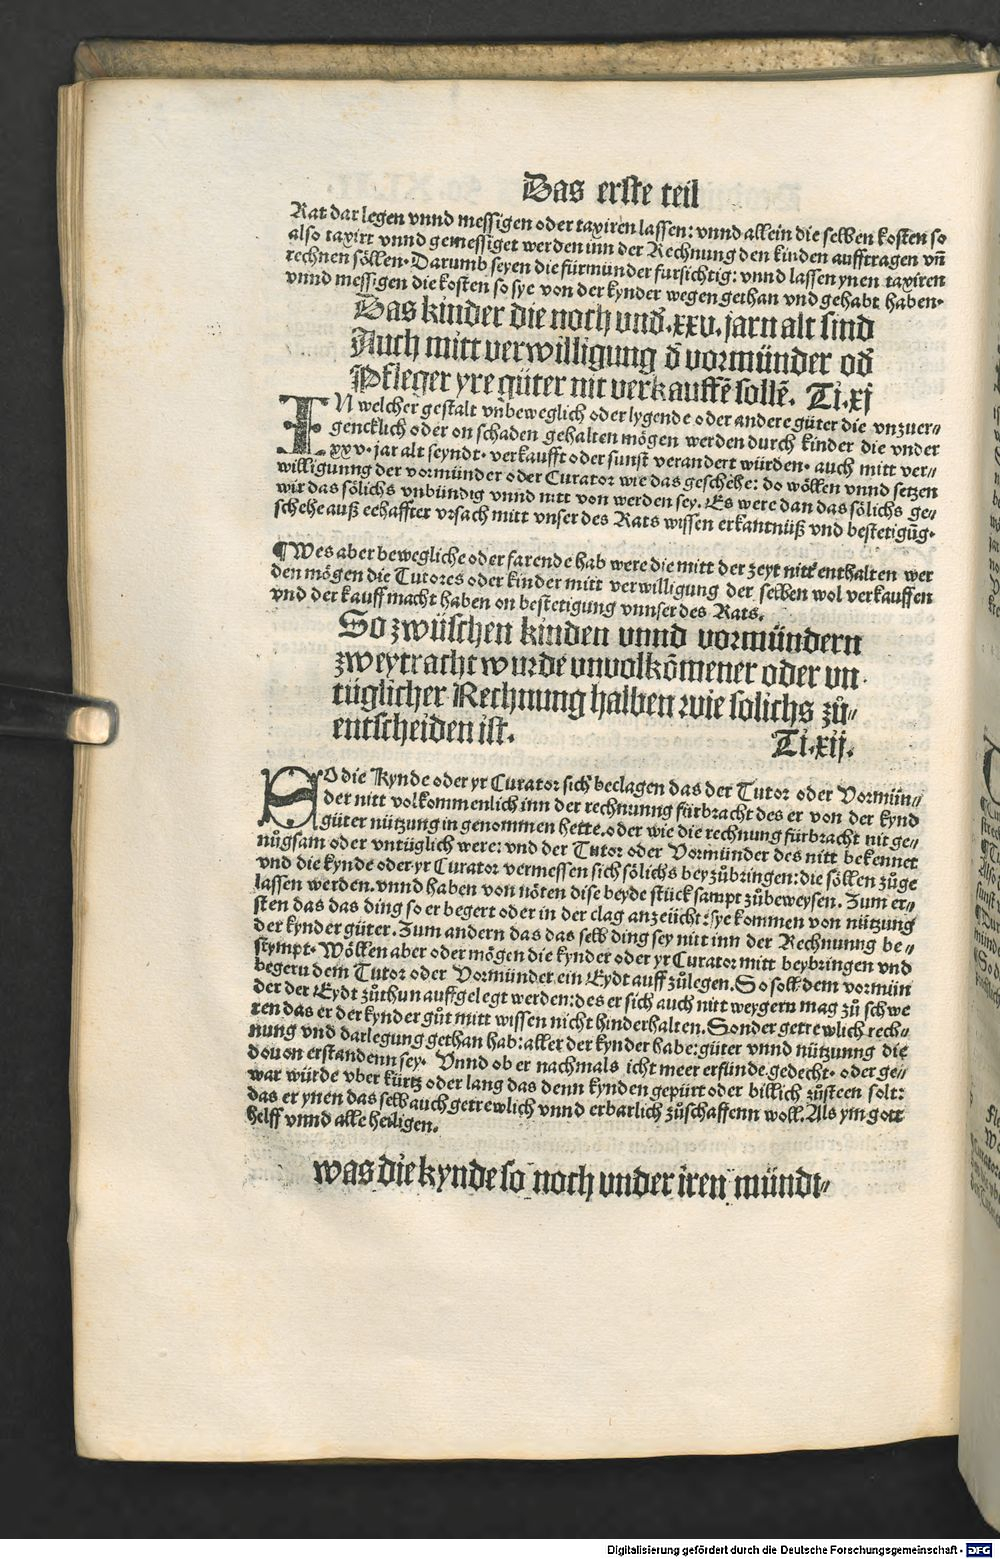 Das erste teil
Rat dar legen vnnd messigen oder taxiren lassen: vnnd allein die selben kosten so
also taxirt vnnd gemessiget werden inn der Rechnung den kinden aufftragen vñ
rechnen söllen. Darumb seyen die fürmünder fursichtig: vnnd lassen ynen taxiren
vnnd messigen die kosten so sye von der kynder wegen gethan vnd gehabt haben.
Das kinder die noch vnd̄.xxv. jarn alt sind
Auch mitt verwilligung d̄ vormünder od̄
Pfleger yre güter nit verkauffē sollē. Ti.xj
IN welcher gestalt vnbeweglich oder lygende oder andere güter die vnzuer⸗
gencklich oder on schaden gehalten mögen werden durch kinder die vnder
xxv. jar alt seyndt. verkaufft oder sunst verandert würden. auch mitt ver⸗
willigunng der vormünder oder Curator wie das geschehe: do wöllen vnnd setzen
wir das sölichs vnbündig vnnd nitt von werden sey. Es were dan das sölichs ge⸗
schehe auß eehaffter vrsach mitt vnser des Rats wissen erkantnüß vnd bestetigūg.
¶ Wes aber bewegliche oder farende hab were die mitt der zeyt nitt enthalten wer
den mögen die Tutores oder kinder mitt verwilligung der selben wol verkauffen
vnd der kauff macht haben on bestetigung vnnser des Rats.
So zwüschen kinden vnnd vormündern
zweytracht wurde vnvolkōmener oder vn⸗
tüglicher Rechnung halben wie solichs zů⸗
entscheiden ist. Ti.xij.
SO die kynde oder yr Curator sich beclagen das der Tutor oder Vormün⸗
der nitt volkommenlich inn der rechnunng fürbracht des er von der kynd
güter nützung in genommen hette. oder wie die rechnung fürbracht nit ge⸗
nůgsam oder vntüglich were: vnd der Tutor oder Vormünder des nitt bekennet
vnd die kynde oder yr Curator vermessen sich sölichs bey zůbringen: die söllen zůge
lassen werden. vnnd haben von nöten dise beyde stück sampt zůbeweysen. Zum er⸗
sten das das ding so er begert oder in der clag anzeücht: sye kommen von nützung
der kynder güter. Zum andern das das selb ding sey nitt inn der Rechnunng be⸗
stympt. Wöllen aber oder mögen die kynder oder yr Curator mitt beybringen vnd
begern dem Tutor oder Vormünder ein Eydt auff zůlegen. So soll dem vormün
der der Eydt zůthun auffgelegt werden: des er sich auch nitt weygern mag zů schwe
ren das er der kynder gůt mitt wissen nicht hinderhalten. Sonder getrewlich rech⸗
nung vnd darlegung gethan hab: aller der kynder habe: güter vnnd nützunng die
douon erstandenn sey. Vnnd ob er nachmals icht meer erfünde gedecht. oder ge⸗
war würde vber kürtz oder lang das denn kynden gepürt oder billich zůsteen solt:
das er ynen das selb auch getrewlich vnnd erbarlich zůschaffenn woll. Als ym gott
helff vnnd alle heiligen.
was die kynde so noch vnder iren mündi⸗
Digitalisierung gefördert durch die Deutsche Forschungsgemeinschaft - DFG